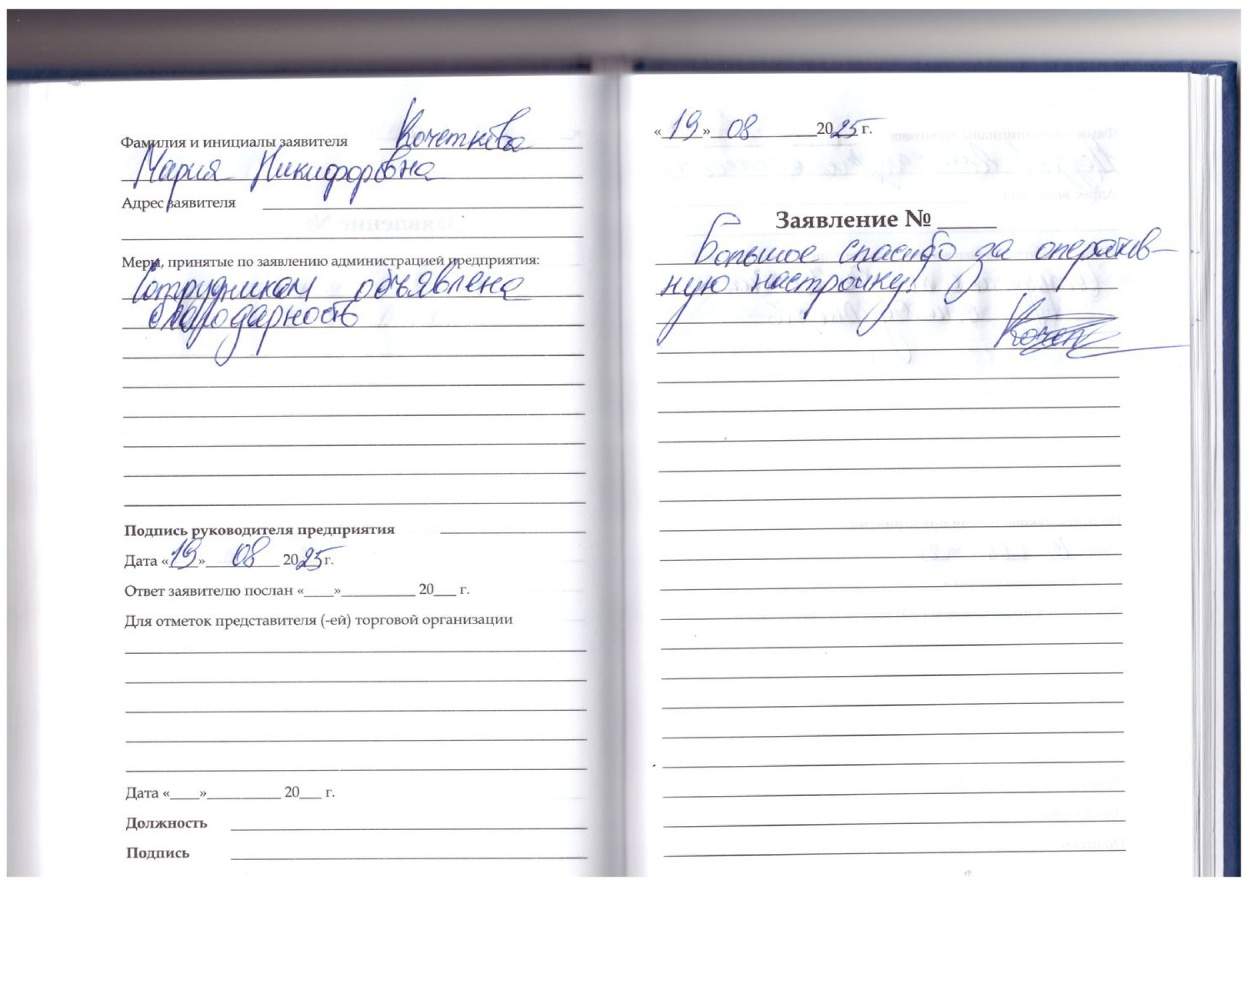 Фамилия и инициалы заявителя Кочеткова
Мария Никифоровна
Адрес заявителя
Меры, принятые по заявлению администрацией предприятия:
Сотрудникам объявлена
благодарность
Подпись руководителя предприятия
Дата «19» 08 2025 г.
Ответ заявителю послан «____»__________ 20___ г.
Для отметок представителя (-ей) торговой организации
Дата «____»__________ 20___ г.
Должность
Подпись
«19» 08 2025 г.
Заявление № ____
Большое спасибо за оператив-
ную настройку!